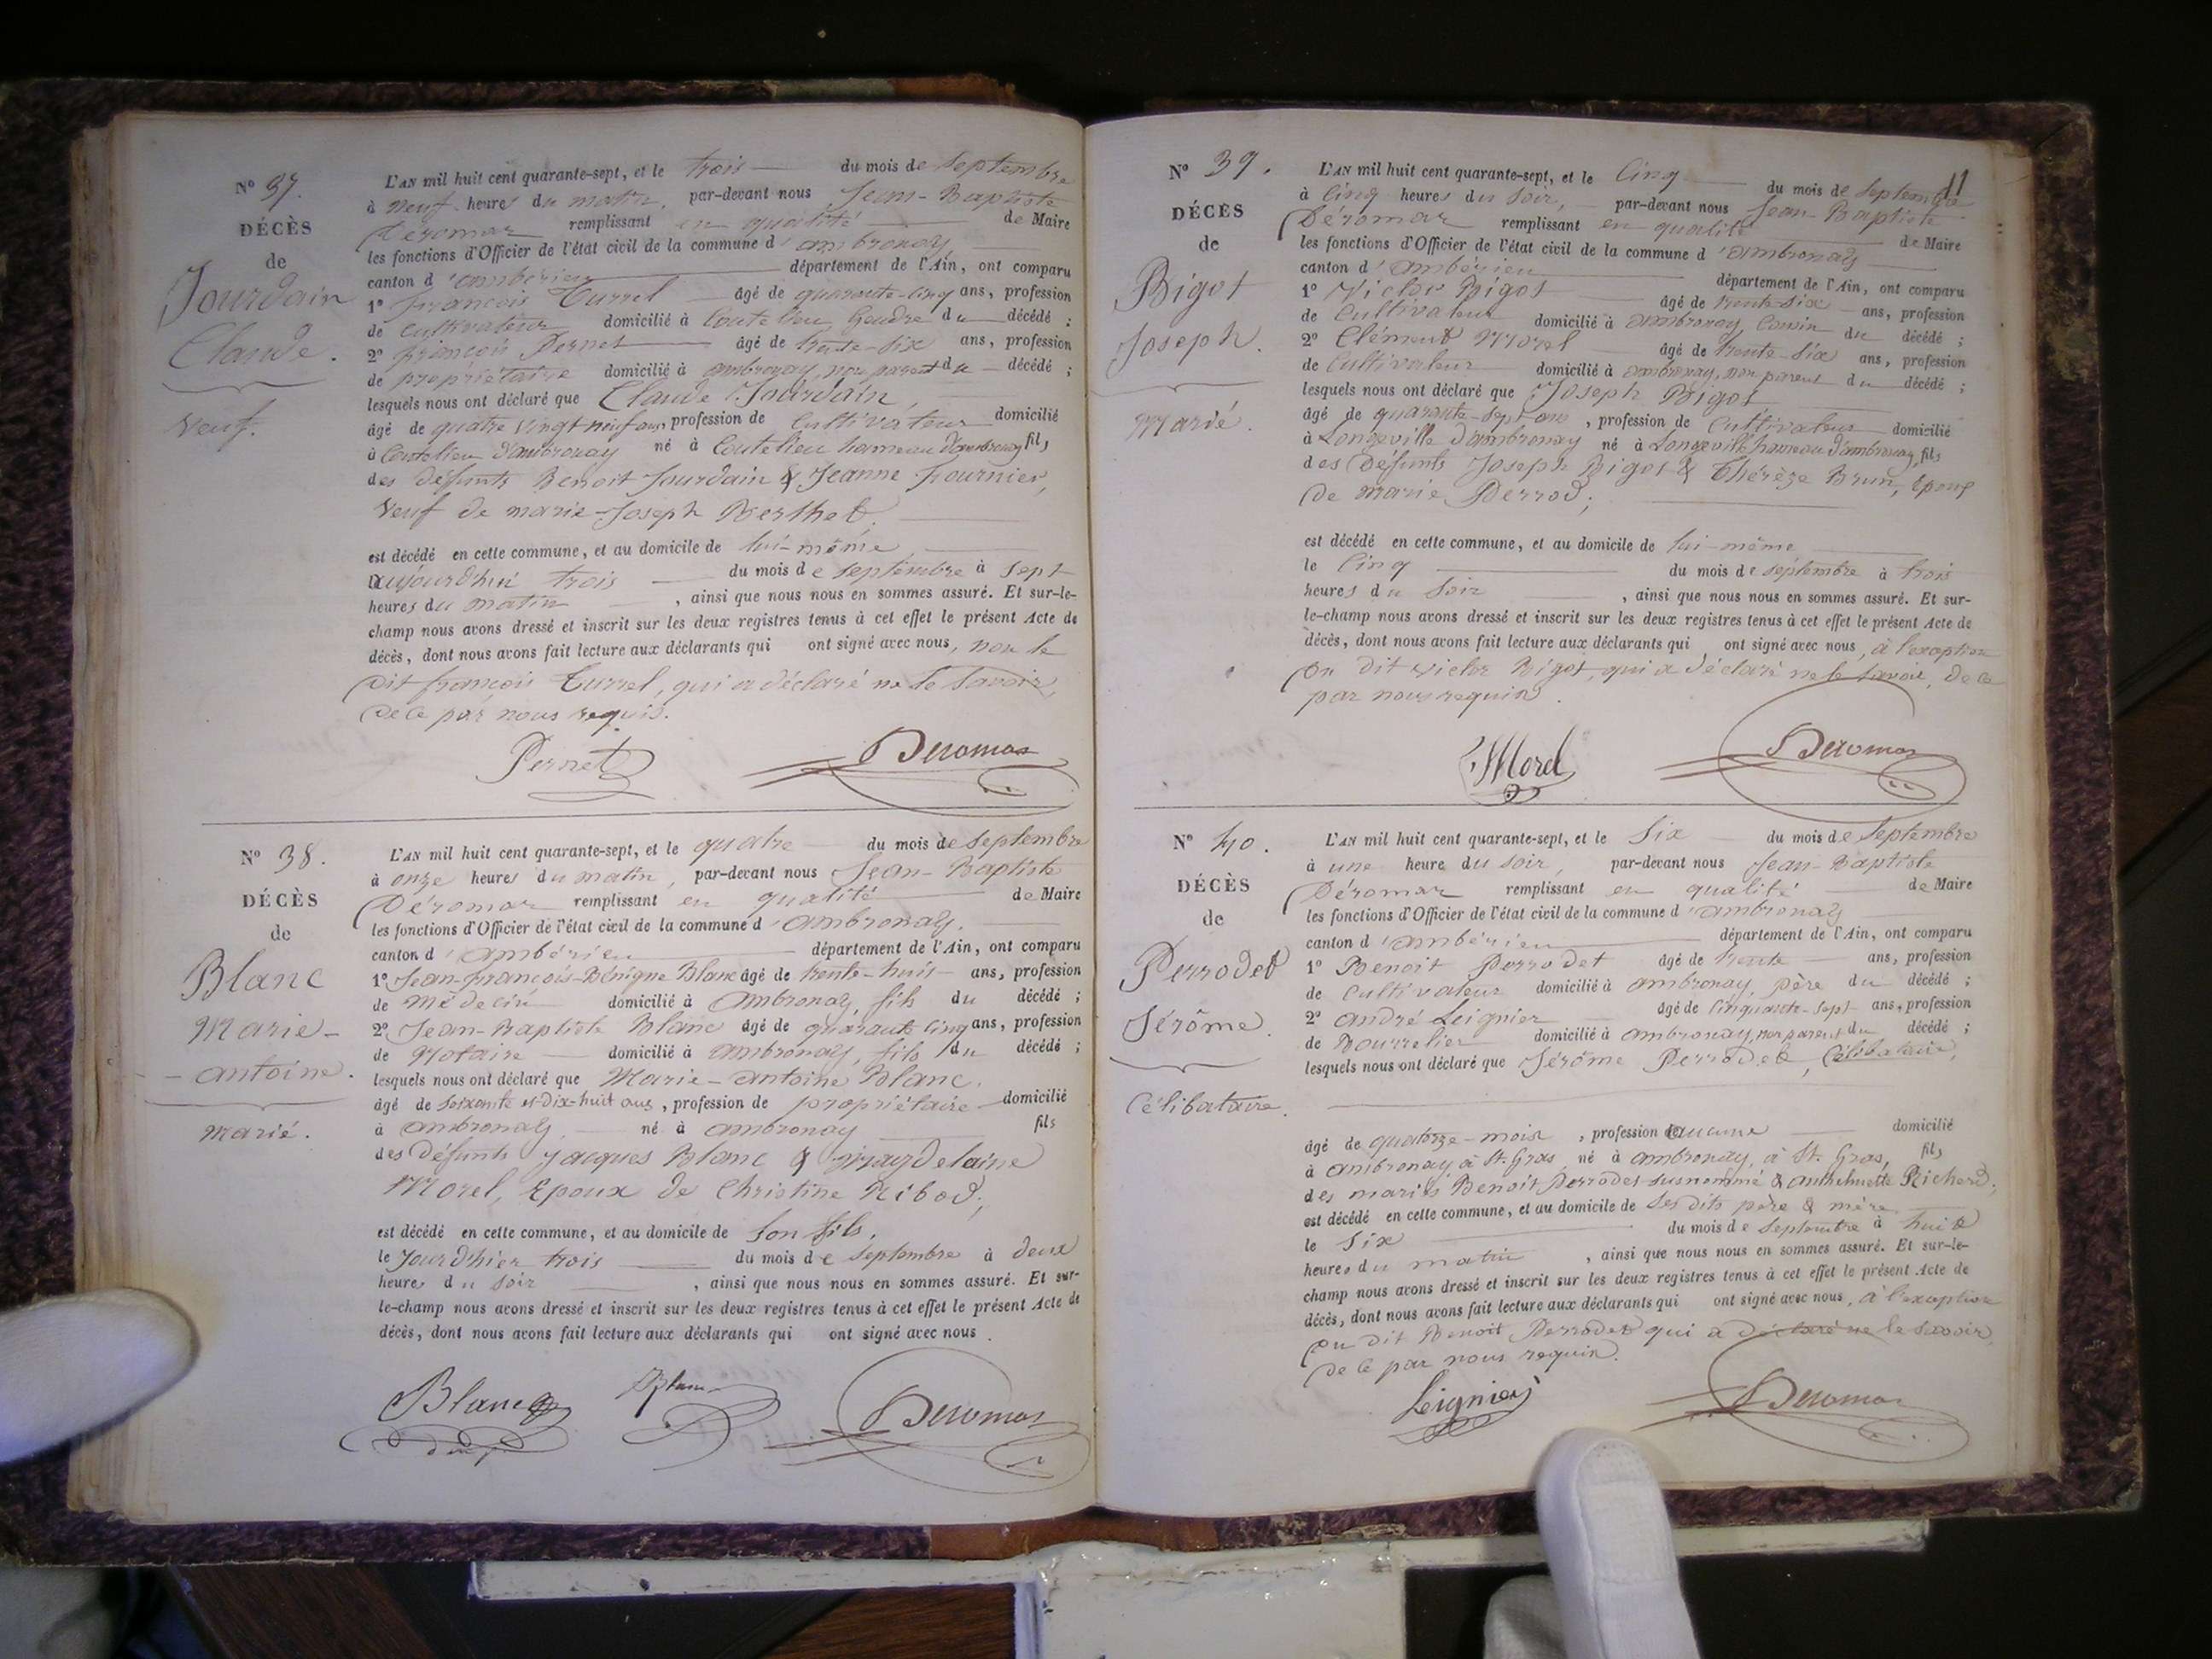 N° 37.
DÉCÈS
de
Jourdain
Claude.
Veuf.
L'AN mil huit cent quarante-sept, et le trois du mois de Septembre
à neuf heures du matin, par-devant nous Jean-Baptiste
Déromas remplissant en qualité de Maire
les fonctions d'Officier de l'état civil de la commune d'ambronay
canton d'ambérieu département de l'Ain, ont comparu
1° françois Turrel âgé de quarante-cinq ans, profession
de Cultivateur domicilié à Coutelieu Gendre du décédé ;
2° françois Pernet âgé de trente-six ans, profession
de propriétaire domicilié à ambronay, non parent du décédé ;
lesquels nous ont déclaré que Claude Jourdain,
âgé de quatre vingt neuf ans, profession de Cultivateur domicilié
à Coutelieu d'ambronay né à Coutelieu hameau d'ambronay fils
des défunts Benoit Jourdain & Jeanne Fournier,
Veuf de marie-Joseph Berthet.
est décédé en cette commune, et au domicile de lui-même
aujourd'hui trois du mois de septembre à sept
heures du matin , ainsi que nous nous en sommes assuré. Et sur-le-
champ nous avons dressé et inscrit sur les deux registres tenus à cet effet le présent Acte de
décès, dont nous avons fait lecture aux déclarants qui ont signé avec nous, non le
dit françois Turrel, qui a déclaré ne le savoir,
de ce par nous requis.
Pernet Deromas
N° 38.
DÉCÈS
de
Blanc
Marie-
-antoine.
marié.
L'AN mil huit cent quarante-sept, et le quatre du mois de Septembre
à onze heures du matin, par-devant nous Jean-Baptiste
Déromas remplissant en qualité de Maire
les fonctions d'Officier de l'état civil de la commune d'ambronay.
canton d'ambérieu département de l'Ain, ont comparu
1° Jean-françois-Bénigne Blanc âgé de trente-huit ans, profession
de Médecin domicilié à Ambronay, fils du décédé ;
2° Jean-Baptiste Blanc âgé de quarante cinq ans, profession
de Notaire domicilié à ambronay, fils du décédé ;
lesquels nous ont déclaré que Marie-antoine Blanc.
âgé de soixante et-dix-huit ans, profession de propriétaire domicilié
à ambronay, né à ambronay fils
des défunts Jacques Blanc & Magdelaine
Morel, Epoux de Christine Ribod;
est décédé en cette commune, et au domicile de Son fils,
le Jourd'hier trois du mois de septembre à deux
heures du soir , ainsi que nous nous en sommes assuré. Et sur-
le-champ nous avons dressé et inscrit sur les deux registres tenus à cet effet le présent Acte de
décès, dont nous avons fait lecture aux déclarants qui ont signé avec nous.
Blanc Blanc Deromas
11
N° 39.
DÉCÈS
de
Bigot
Joseph.
Marié.
L'AN mil huit cent quarante-sept, et le Cinq du mois de Septembre
à Cinq heures du Soir, par-devant nous Jean-Baptiste
Déromas remplissant en qualité de Maire
les fonctions d'Officier de l'état civil de la commune d'ambronay
canton d'Ambérieu département de l'Ain, ont comparu
1° Victor Bigot âgé de trente-six ans, profession
de Cultivateur domicilié à ambronay, Cousin du décédé ;
2° Clément Morel âgé de trente-six ans, profession
de Cultivateur domicilié à ambronay, non parent du décédé ;
lesquels nous ont déclaré que Joseph Bigot
âgé de quarante-sept ans, profession de Cultivateur domicilié
à Longeville d'ambronay né à Longeville hameau d'ambronay, fils
des Défunts Joseph Bigot & Thérèze Brun, Epoux
de marie Perrod;
est décédé en cette commune, et au domicile de lui-même
le Cinq du mois de septembre à trois
heures du Soir , ainsi que nous nous en sommes assuré. Et sur-
le-champ nous avons dressé et inscrit sur les deux registres tenus à cet effet le présent Acte de
décès, dont nous avons fait lecture aux déclarants qui ont signé avec nous, à l'exception
Du dit victor Bigot, qui a déclaré ne le savoir, de ce
par nous requis.
Morel Deromas
N° 40.
DÉCÈS
de
Perrodet
Jérôme.
Célibataire.
L'AN mil huit cent quarante-sept, et le Six du mois de Septembre
à une heure du soir, par-devant nous Jean-Baptiste
Déromas remplissant en qualité de Maire
les fonctions d'Officier de l'état civil de la commune d'ambronay
canton d'ambérieu département de l'Ain, ont comparu
1° Benoit Perrodet âgé de trente ans, profession
de Cultivateur domicilié à ambronay, père du décédé ;
2° andré Leignier âgé de Cinquante-sept ans, profession
de Bourrelier domicilié à ambronay, non parent du décédé ;
lesquels nous ont déclaré que Jérôme Perrodet, Célibataire,
âgé de quatorze-mois, profession aucune domicilié
à ambronay à St. Gras, né à ambronay, à St. Gras, fils
des mariés Benoit Perrodet susnommé & anthelmette Richerd;
est décédé en cette commune, et au domicile de Ses dits père & mère
le Six du mois de Septembre à huit
heures du matin , ainsi que nous nous en sommes assuré. Et sur-le-
champ nous avons dressé et inscrit sur les deux registres tenus à cet effet le présent Acte de
décès, dont nous avons fait lecture aux déclarants qui ont signé avec nous, à l'exception
Du dit Benoit Perrodet qui a déclaré ne le savoir,
de ce par nous requis.
Leignier Deromas